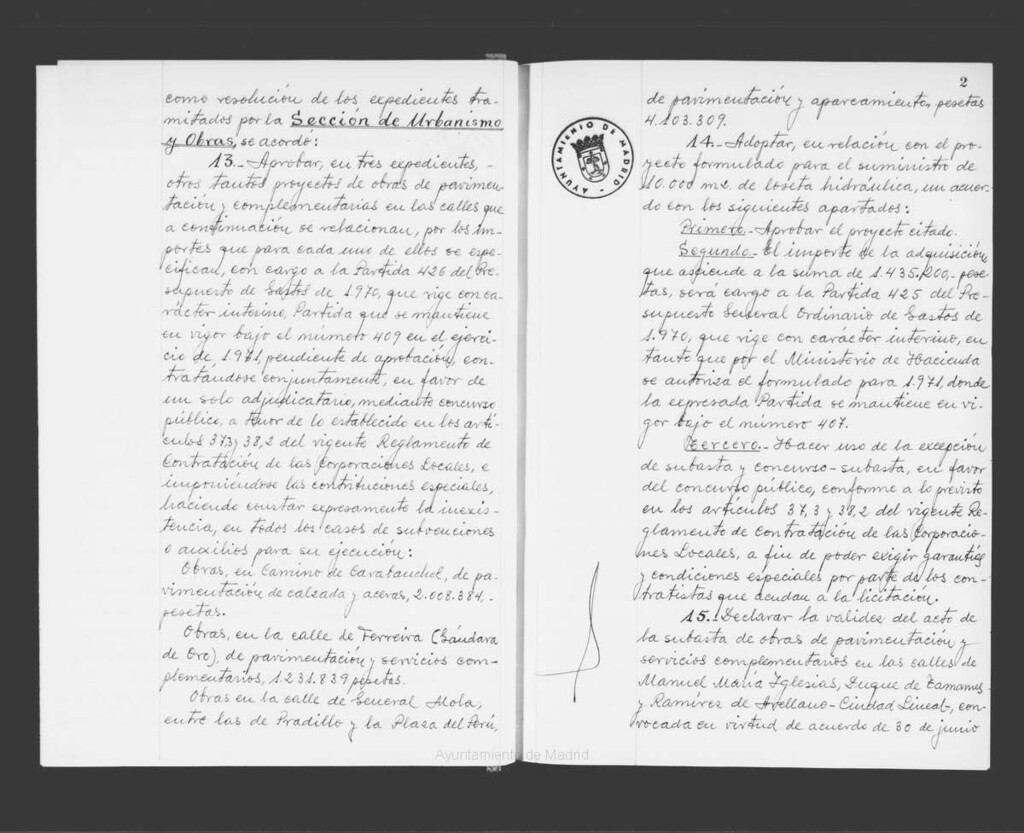 como resolución de los expedientes tra-
mitados por la Sección de Urbanismo
y Obras, se acordó:
13.- Aprobar, en tres expedientes, -
otros tantos proyectos de obras de pavimen-
tación y complementarias en las calles que
a continuación se relacionan, por los im-
portes que para cada uno de ellos se espe-
cifican, con cargo a la Partida 426 del Pre-
supuesto de Gastos de 1.970, que rige con ca-
rácter interino, Partida que se mantiene
en vigor bajo el número 409 en el ejerci-
cio de 1.971, pendiente de aprobación, con-
tratándose conjuntamente, en favor de
un solo adjudicatario, mediante concurso
público, a tenor de lo establecido en los artí-
culos 37,3 y 38,2 del vigente Reglamento de
Contratación de las Corporaciones Locales, e
imponiéndose las contribuciones especiales,
haciendo constar expresamente la inexis-
tencia, en todos los casos de subvenciones
o auxilios para su ejecución:
Obras, en Camino de Carabanchel, de pa-
vimentación de calzada y aceras, 2.008.384,-
pesetas.
Obras, en la calle de Ferreira (Gándara
de Oro), de pavimentación y servicios com-
plementarios, 1.231.839 pesetas.
Obras en la calle de General Mola,
entre las de Pradillo y la Plaza del Perú,
2
de pavimentación y aparcamiento, pesetas
4.103.309.
14.- Adoptar, en relación con el pro-
yecto formulado para el suministro de
10.000 m2. de loseta hidráulica, un acuer-
do con los siguientes apartados:
Primero.- Aprobar el proyecto citado.
Segundo.- El importe de la adquisición,
que asciende a la suma de 1.435.200,- pese-
tas, será cargo a la Partida 425 del Pre-
supuesto General Ordinario de Gastos de
1.970, que rige con carácter interino, en
tanto que por el Ministerio de Hacienda
se autoriza el formulado para 1.971, donde
la expresada Partida se mantiene en vi-
gor bajo el número 407.
Tercero.- Hacer uso de la excepción
de subasta y concurso-subasta, en favor
del concurso público, conforme a lo previsto
en los artículos 37,3 y 38,2 del vigente Re-
glamento de Contratación de las Corporacio-
nes Locales, a fin de poder exigir garantías
y condiciones especiales por parte de los con-
tratistas que acudan a la licitación.
15.- Declarar la validez del acto de
la subasta de obras de pavimentación y
servicios complementarios en las calles de
Manuel María Iglesias, Duque de Tamames
y Ramírez de Arellano-Ciudad Lineal-, con-
vocada en virtud de acuerdo de 30 de junio
AYUNTAMIENTO DE MADRID
Ayuntamiento de Madrid